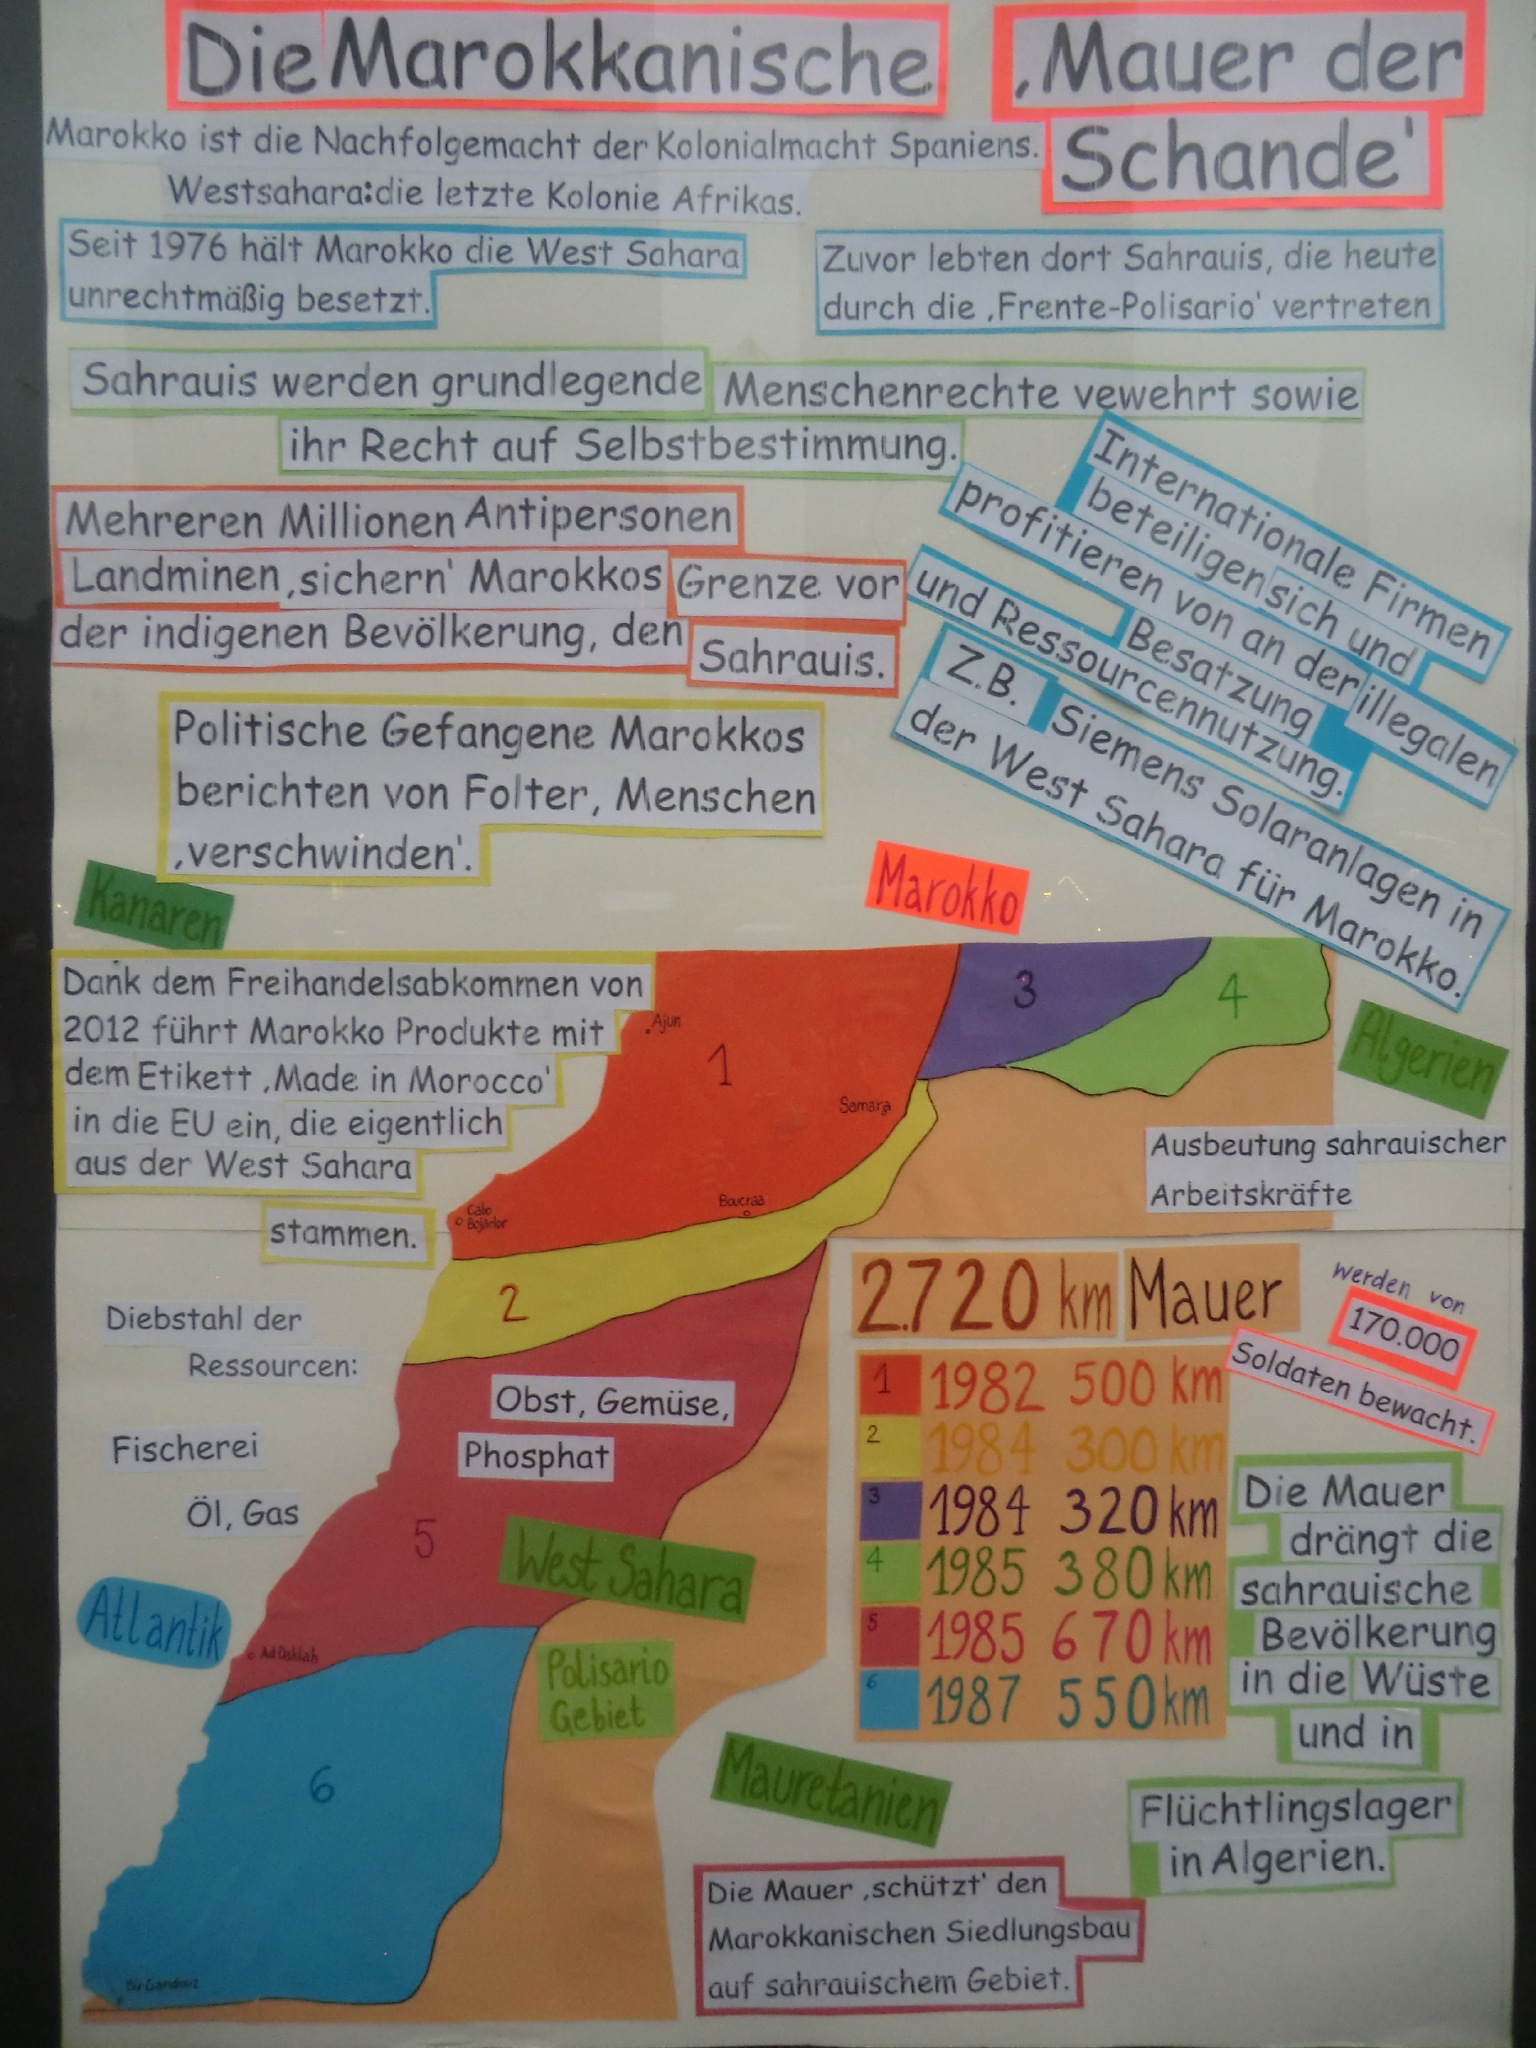 Die Marokkanische ‚Mauer der
Schande'
Marokko ist die Nachfolgemacht der Kolonialmacht Spaniens.
Westsahara:die letzte Kolonie Afrikas.
Seit 1976 hält Marokko die West Sahara
unrechtmäßig besetzt.
Zuvor lebten dort Sahrauis, die heute
durch die ‚Frente-Polisario' vertreten
Sahrauis werden grundlegende Menschenrechte vewehrt sowie
ihr Recht auf Selbstbestimmung.
Mehreren Millionen Antipersonen
Landminen ‚sichern' Marokkos Grenze vor
der indigenen Bevölkerung, den Sahrauis.
Internationale Firmen
beteiligen sich und
profitieren von an der illegalen
Besatzung
und Ressourcennutzung.
Z.B. Siemens Solaranlagen in
der West Sahara für Marokko.
Politische Gefangene Marokkos
berichten von Folter, Menschen
‚verschwinden'.
Kanaren
Marokko
Dank dem Freihandelsabkommen von
2012 führt Marokko Produkte mit
dem Etikett ‚Made in Morocco'
in die EU ein, die eigentlich
aus der West Sahara
stammen.
3
4
Ajun
1
Algerien
Samara
Ausbeutung sahrauischer
Arbeitskräfte
Boucraa
Cabo
Bojador
2
2.720 km Mauer
werden von
170.000
Soldaten bewacht.
1 1982 500 km
2 1984 300 km
3 1984 320 km
4 1985 380 km
5 1985 670 km
6 1987 550 km
Diebstahl der
Ressourcen:
Fischerei
Öl, Gas
Obst, Gemüse,
Phosphat
5
West Sahara
Atlantik
Ad Dakhlah
Polisario
Gebiet
Die Mauer
drängt die
sahrauische
Bevölkerung
in die Wüste
und in
Flüchtlingslager
in Algerien.
6
Mauretanien
Die Mauer ‚schützt' den
Marokkanischen Siedlungsbau
auf sahrauischem Gebiet.
Bir Gandouz